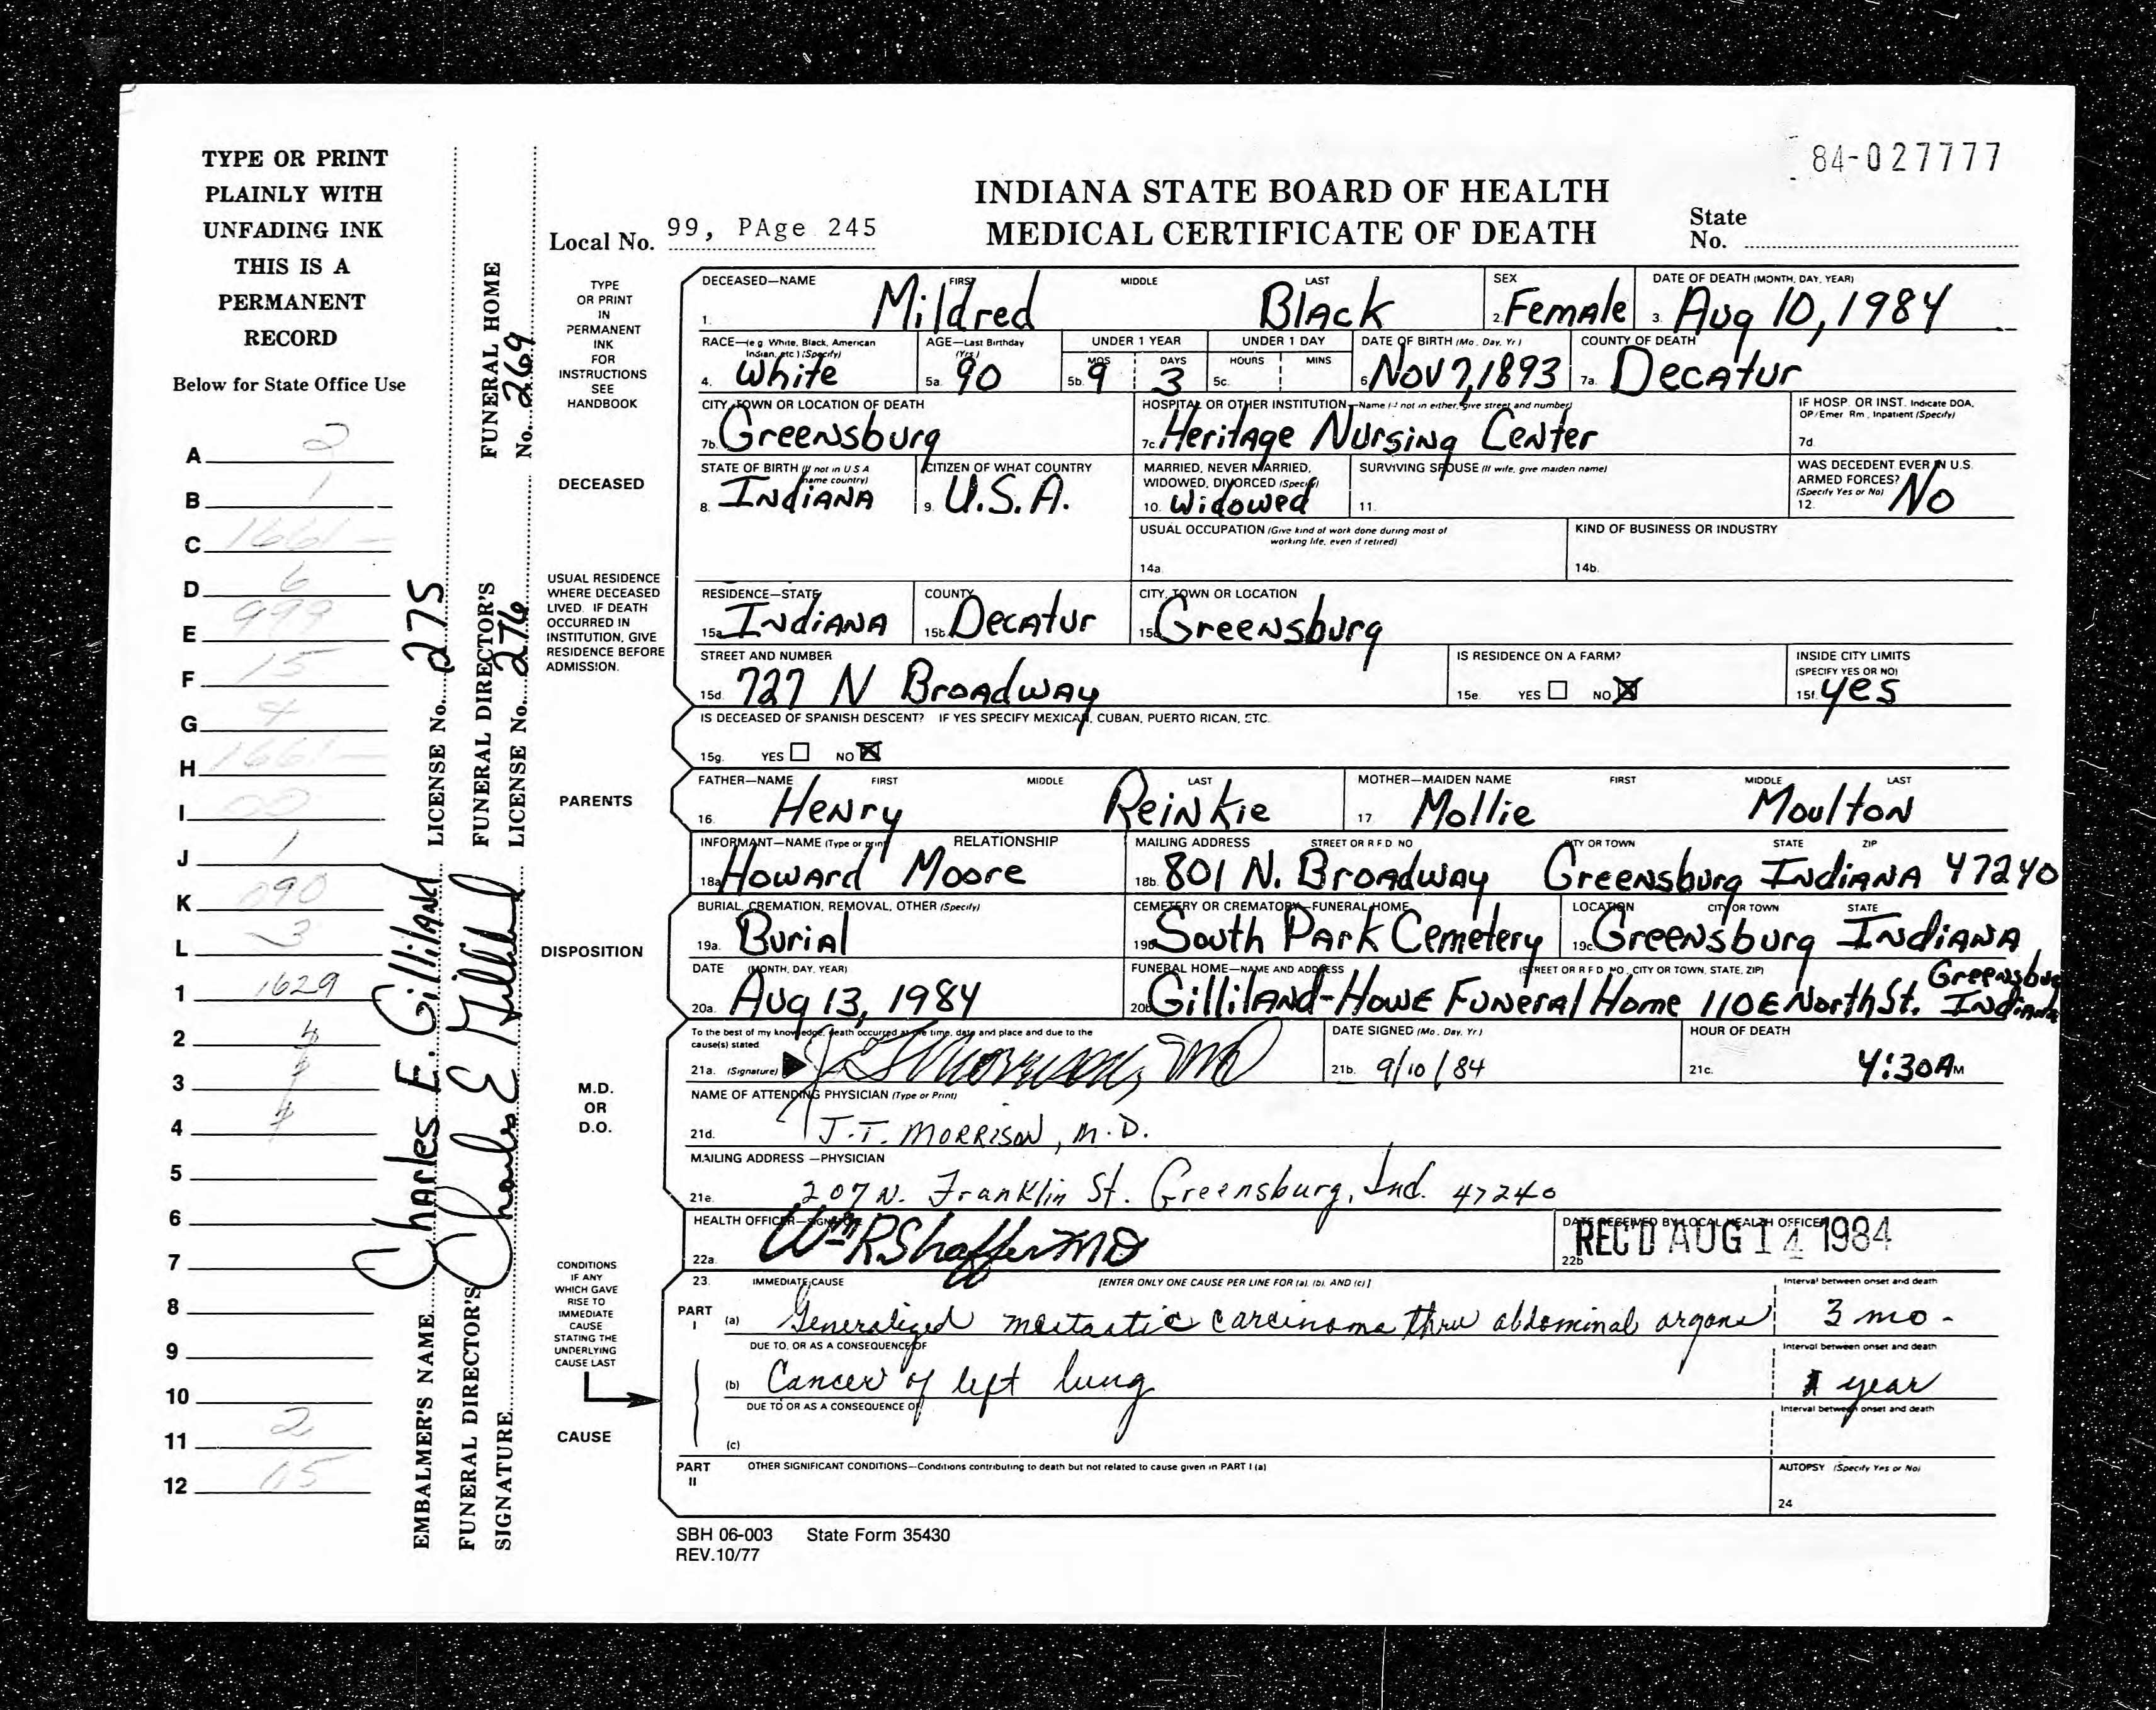 84-027777
INDIANA STATE BOARD OF HEALTH
MEDICAL CERTIFICATE OF DEATH
Local No. 99, PAge 245
State
No.
TYPE OR PRINT
PLAINLY WITH
UNFADING INK
THIS IS A
PERMANENT
RECORD
Below for State Office Use
A 2
B 1
C 1661-
D 6
E 999
F 15
G 4
H 1661-
I 00
J 1
K 090
L 3
1 1629
2
3
4
5
6
7
8
9
10
11 2
12 05
EMBALMER'S NAME Charles E. Gilliland LICENSE No. 275
FUNERAL DIRECTOR'S SIGNATURE Charles E Gilliland FUNERAL DIRECTOR'S LICENSE No. 276
FUNERAL HOME No. 269
TYPE
OR PRINT
IN
PERMANENT
INK
FOR
INSTRUCTIONS
SEE
HANDBOOK
DECEASED—NAME FIRST MIDDLE LAST SEX DATE OF DEATH (MONTH, DAY, YEAR)
1. Mildred Black 2. Female 3. Aug 10, 1984
RACE—(e g White, Black, American Indian, etc ) (Specify) AGE—Last Birthday (Yrs) UNDER 1 YEAR UNDER 1 DAY DATE OF BIRTH (Mo. Day. Yr) COUNTY OF DEATH
MOS DAYS HOURS MINS
4. White 5a. 90 5b. 9 3 5c. 6 Nov 7, 1893 7a. Decatur
CITY, TOWN OR LOCATION OF DEATH HOSPITAL OR OTHER INSTITUTION—Name (If not in either, give street and number) IF HOSP. OR INST. Indicate DOA, OP/Emer Rm., Inpatient (Specify)
7b. Greensburg 7c. Heritage Nursing Center 7d.
DECEASED
STATE OF BIRTH (If not in U S A name country) CITIZEN OF WHAT COUNTRY MARRIED, NEVER MARRIED, WIDOWED, DIVORCED (Specify) SURVIVING SPOUSE (If wife, give maiden name) WAS DECEDENT EVER IN U.S. ARMED FORCES? (Specify Yes or No)
8. Indiana 9. U.S.A. 10. Widowed 11. 12. No
USUAL OCCUPATION (Give kind of work done during most of working life, even if retired) KIND OF BUSINESS OR INDUSTRY
14a. 14b.
USUAL RESIDENCE
WHERE DECEASED
LIVED. IF DEATH
OCCURRED IN
INSTITUTION, GIVE
RESIDENCE BEFORE
ADMISSION.
RESIDENCE—STATE COUNTY CITY, TOWN OR LOCATION
15a Indiana 15b. Decatur 15c Greensburg
STREET AND NUMBER IS RESIDENCE ON A FARM? INSIDE CITY LIMITS (SPECIFY YES OR NO)
15d. 727 N Broadway 15e. YES NO X 15f. yes
IS DECEASED OF SPANISH DESCENT? IF YES SPECIFY MEXICAN, CUBAN, PUERTO RICAN, ETC.
15g. YES NO X
PARENTS
FATHER—NAME FIRST MIDDLE LAST MOTHER—MAIDEN NAME FIRST MIDDLE LAST
16. Henry Reinkie 17 Mollie Moulton
INFORMANT—NAME (Type or print) RELATIONSHIP MAILING ADDRESS STREET OR R F D NO CITY OR TOWN STATE ZIP
18a Howard Moore 18b. 801 N. Broadway Greensburg Indiana 47240
DISPOSITION
BURIAL, CREMATION, REMOVAL, OTHER (Specify) CEMETERY OR CREMATORY—FUNERAL HOME LOCATION CITY OR TOWN STATE
19a. Burial 19b South Park Cemetery 19c. Greensburg Indiana
DATE (MONTH, DAY, YEAR) FUNERAL HOME—NAME AND ADDRESS (STREET OR R F D NO, CITY OR TOWN, STATE, ZIP)
20a. Aug 13, 1984 20b Gilliland-Howe Funeral Home 110 E North St. Greensburg Indiana
M.D.
OR
D.O.
To the best of my knowledge, death occurred at the time, date and place and due to the cause(s) stated DATE SIGNED (Mo. Day, Yr.) HOUR OF DEATH
21a. (Signature) J T Morrison, MD 21b. 9/10/84 21c. 4:30 AM
NAME OF ATTENDING PHYSICIAN (Type or Print)
21d. J.T. MORRISON, M.D.
MAILING ADDRESS —PHYSICIAN
21e. 207 N. Franklin St. Greensburg, Ind. 47240
HEALTH OFFICER—SIGNATURE DATE RECEIVED BY LOCAL HEALTH OFFICER
22a. Wm R Shaffer MD 22b REC'D AUG 14 1984
CONDITIONS
IF ANY
WHICH GAVE
RISE TO
IMMEDIATE
CAUSE
STATING THE
UNDERLYING
CAUSE LAST
CAUSE
23. IMMEDIATE CAUSE [ENTER ONLY ONE CAUSE PER LINE FOR (a), (b), AND (c)] Interval between onset and death
PART I (a) Generalized meatastic carcinoma thru abdominal organs 3 mo.
DUE TO, OR AS A CONSEQUENCE OF Interval between onset and death
(b) Cancer of left lung 1 year
DUE TO OR AS A CONSEQUENCE OF Interval between onset and death
(c)
PART II OTHER SIGNIFICANT CONDITIONS—Conditions contributing to death but not related to cause given in PART I (a) AUTOPSY (Specify Yes or No)
24
SBH 06-003 State Form 35430
REV.10/77